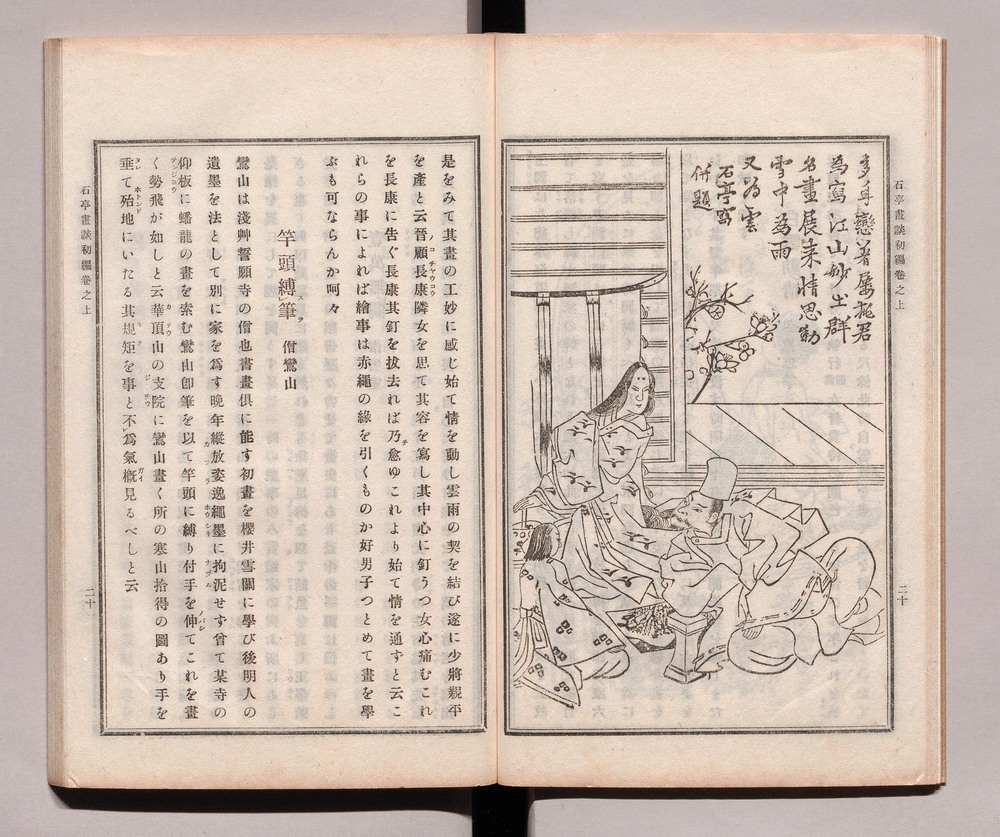 石亭畫談初編卷之上
二十
多身戀著屬挑君
為寫江山妙出群
名畫展来情思動
雪中為雨
又為雲
石亭寫
併題
是をみて其畫の工妙に感じ始て情を動し雲雨の契を結び遂に少將親平
を產と云晉顧長康隣女を思て其容を寫し其中心に釘うつ女心痛むこれ
を長康に告ぐ長康其釘を拔去れば乃愈ゆこれより始て情を通ずと云こ
れらの事によれば繪事は赤繩の緣を引くものか好男子つとめて畫を學
ぶも可ならんか呵々
竿頭縛筆 僧鸞山
鸞山は淺艸誓願寺の僧也書畫俱に能す初畫を櫻井雪關に學び後明人の
遺墨を法として別に家を爲す晚年縱放姿逸繩墨に拘泥せず曾て某寺の
仰板に蟠龍の畫を索む鸞山卽筆を以て竿頭に縛り付手を伸てこれを畫
く勢飛が如しと云華頂山の支院に鸞山畫く所の寒山拾得の圖あり手を
垂て殆地にいたる其規矩を事と不爲氣概見るべしと云
石亭畫談初編卷之上
二十